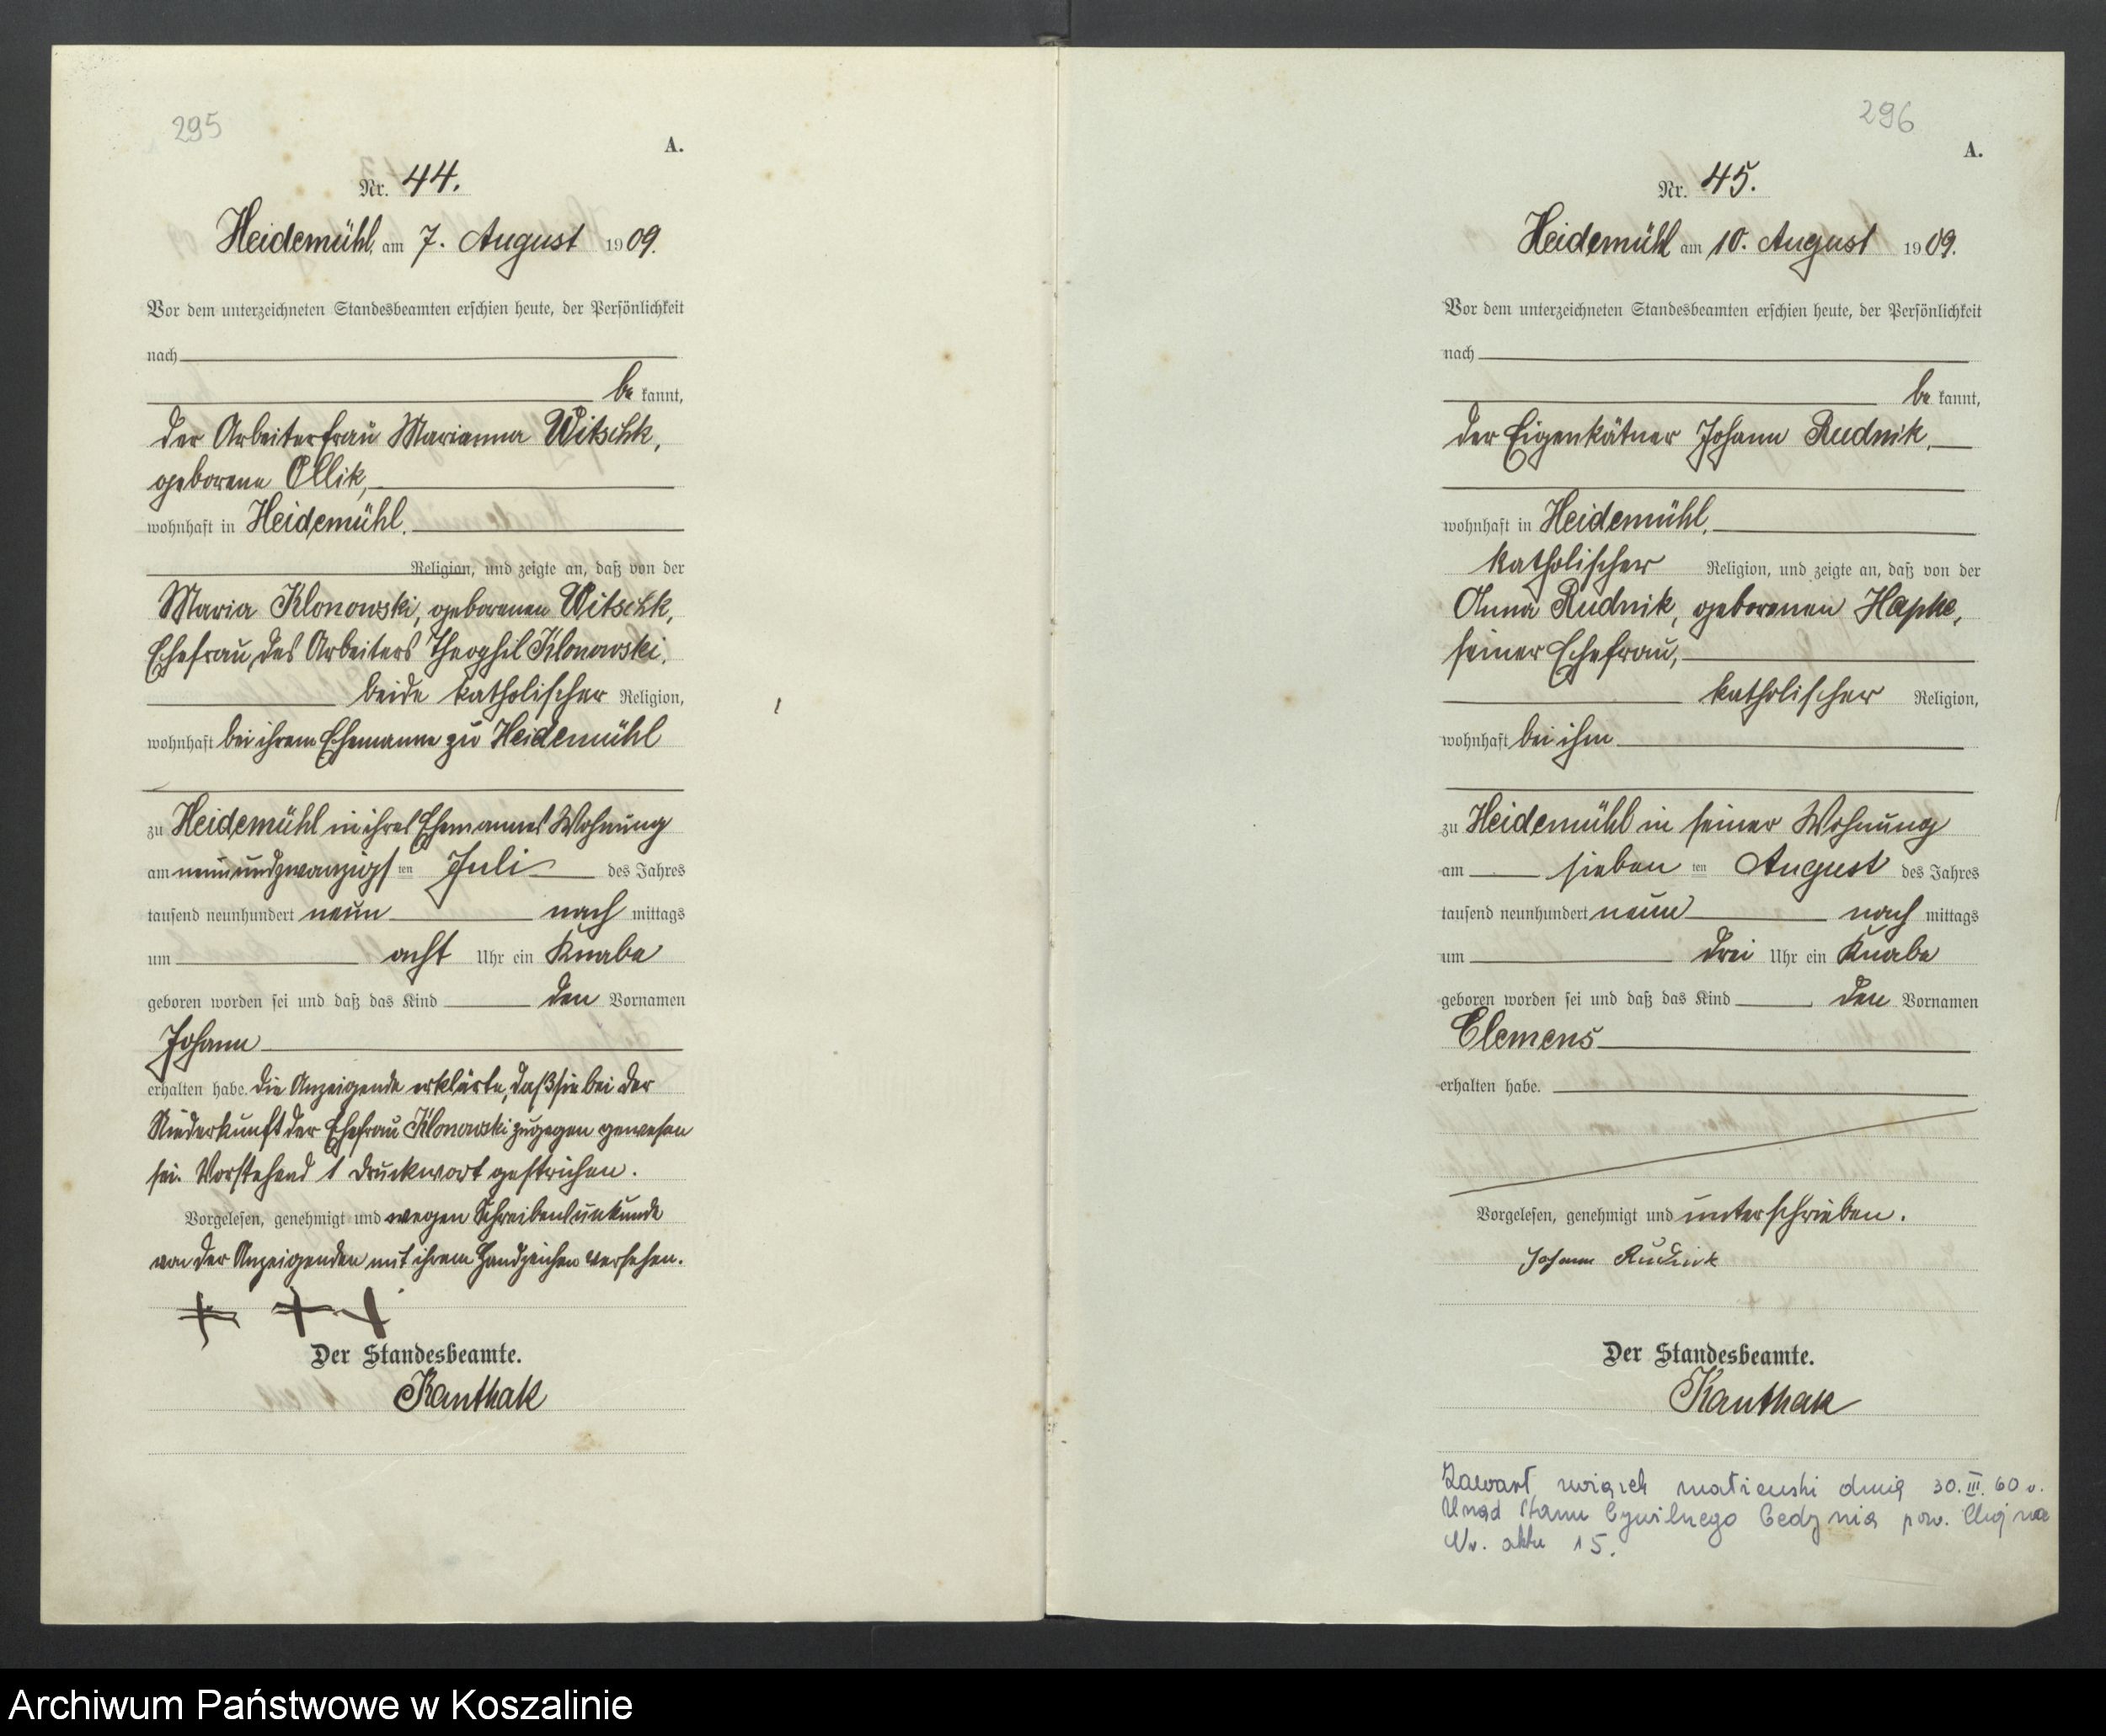 295
A.
Nr. 44.
Heidemühl, am 7. August 1909.
Vor dem unterzeichneten Standesbeamten erschien heute, der Persönlichkeit
nach
be kannt,
der Arbeiterfrau Marianna Witschk,
geborene Ollik,
wohnhaft in Heidemühl.
Religion, und zeigte an, daß von der
Maria Klonowski, geborenen Witschk,
Ehefrau des Arbeiters Theophil Klonowski,
beide katholischer Religion,
wohnhaft bei ihrem Ehemanne zu Heidemühl
zu Heidemühl in ihres Ehemannes Wohnung
am neunundzwanzigsten Juli des Jahres
tausend neunhundert neun nach mittags
um acht Uhr ein Knabe
geboren worden sei und daß das Kind den Vornamen
Johann
erhalten habe. Die Anzeigende erklärte, daß sie bei der
Niederkunft der Ehefrau Klonowski zugegen gewesen
sei. Vorstehend 1 Druckwort gestrichen.
Vorgelesen, genehmigt und wegen Schreibensunkunde
von der Anzeigenden mit ihrem Handzeichen versehen.
+ + +
Der Standesbeamte.
Kanthak
296
A.
Nr. 45.
Heidemühl am 10. August 1909.
Vor dem unterzeichneten Standesbeamten erschien heute, der Persönlichkeit
nach
be kannt,
der Eigenkätner Johann Rudnik,
wohnhaft in Heidemühl,
katholischer Religion, und zeigte an, daß von der
Anna Rudnik, geborenen Hapke,
seiner Ehefrau,
katholischer Religion,
wohnhaft bei ihm
zu Heidemühl in seiner Wohnung
am sieben ten August des Jahres
tausend neunhundert neun nach mittags
um drei Uhr ein Knabe
geboren worden sei und daß das Kind den Vornamen
Clemens
erhalten habe.
Vorgelesen, genehmigt und unterschrieben.
Johann Rudnik
Der Standesbeamte.
Kanthak
Zawarł związek małżeński dnia 30.III.60 r.
Urząd Stanu Cywilnego Cedynia pow. Chojna
Nr. aktu 15.
Archiwum Państwowe w Koszalinie